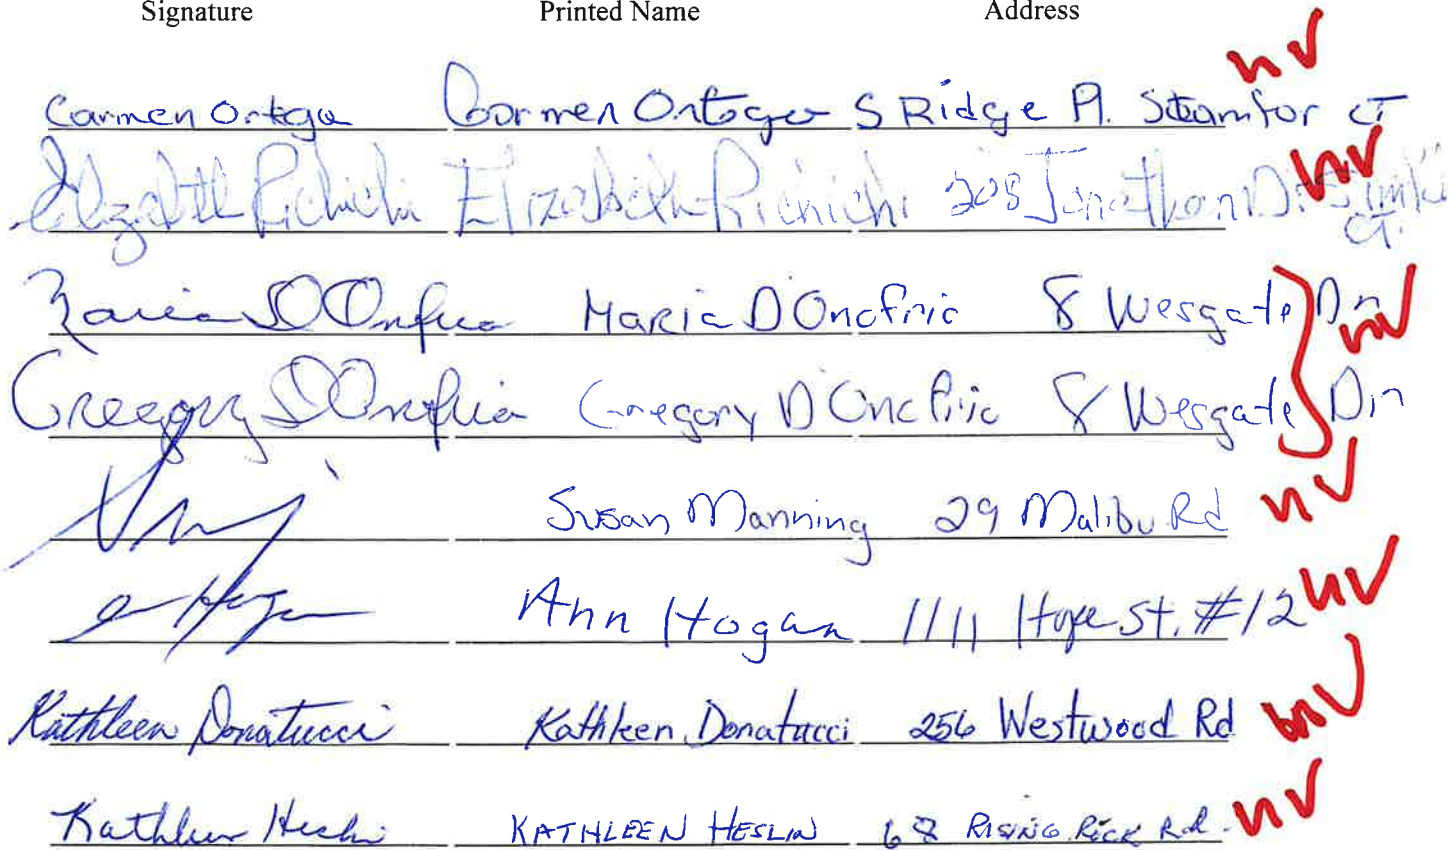 Signature Printed Name Address
nv
Carmen Ortega Carmen Ortega 5 Ridge Pl. Stamfor CT
nv
Elizabeth Richichi Elizabeth Richichi 208 Jonathan Dr.
CT.
Maria D'Onofrio Maria D Onofrio 8 Wesgate Dr nv
Gregory D'Onofrio Gregory D Onofrio 8 Wesgate Dr
Susan Manning 29 Malibu Rd nv
Hogan Ann Hogan 1111 Hope St. #12 nv
Kathleen Donatucci Kathleen Donatucci 256 Westwood Rd nv
Kathleen Heslin KATHLEEN HESLIN 68 RISING ROCK Rd. nv